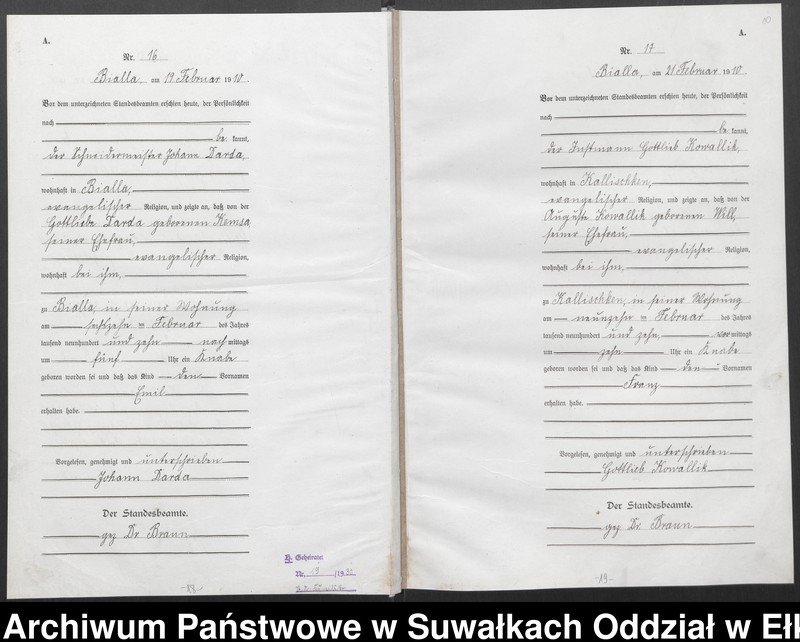 A.
Nr. 16
Bialla, am 19 Februar 1910
Vor dem unterzeichneten Standesbeamten erschien heute, der Persönlichkeit
nach
be kannt,
der Schneidermeister Johann Darda,
wohnhaft in Bialla,
evangelischer Religion, und zeigte an, daß von der
Gottliebe Darda geborenen Kemsa
seiner Ehefrau,
evangelischer Religion,
wohnhaft bei ihm,
zu Bialla, in seiner Wohnung
am sechszehn = Februar des Jahres
tausend neunhundert und zehn nach mittags
um fünf Uhr ein Knabe
geboren worden sei und daß das Kind den Vornamen
Emil
erhalten habe.
Vorgelesen, genehmigt und unterschrieben
Johann Darda
Der Standesbeamte.
gez Dr Braun
H. Geheiratet
Nr. 13 /19
-18-
10
A.
Nr. 17
Bialla, am 21 Februar 1910
Vor dem unterzeichneten Standesbeamten erschien heute, der Persönlichkeit
nach
be kannt,
der Instmann Gottlieb Kowallik,
wohnhaft in Kallischken,
evangelischer Religion, und zeigte an, daß von der
Auguste Kowallik geborenen Will,
seiner Ehefrau,
evangelischer Religion,
wohnhaft bei ihm,
zu Kallischken, in seiner Wohnung
am neunzehn = Februar des Jahres
tausend neunhundert und zehn, vor mittags
um zehn Uhr ein Knabe
geboren worden sei und daß das Kind den Vornamen
Franz
erhalten habe.
Vorgelesen, genehmigt und unterschrieben
Gottlieb Kowallik
Der Standesbeamte.
gez Dr. Braun
-19-
Archiwum Państwowe w Suwałkach Oddział w Eł